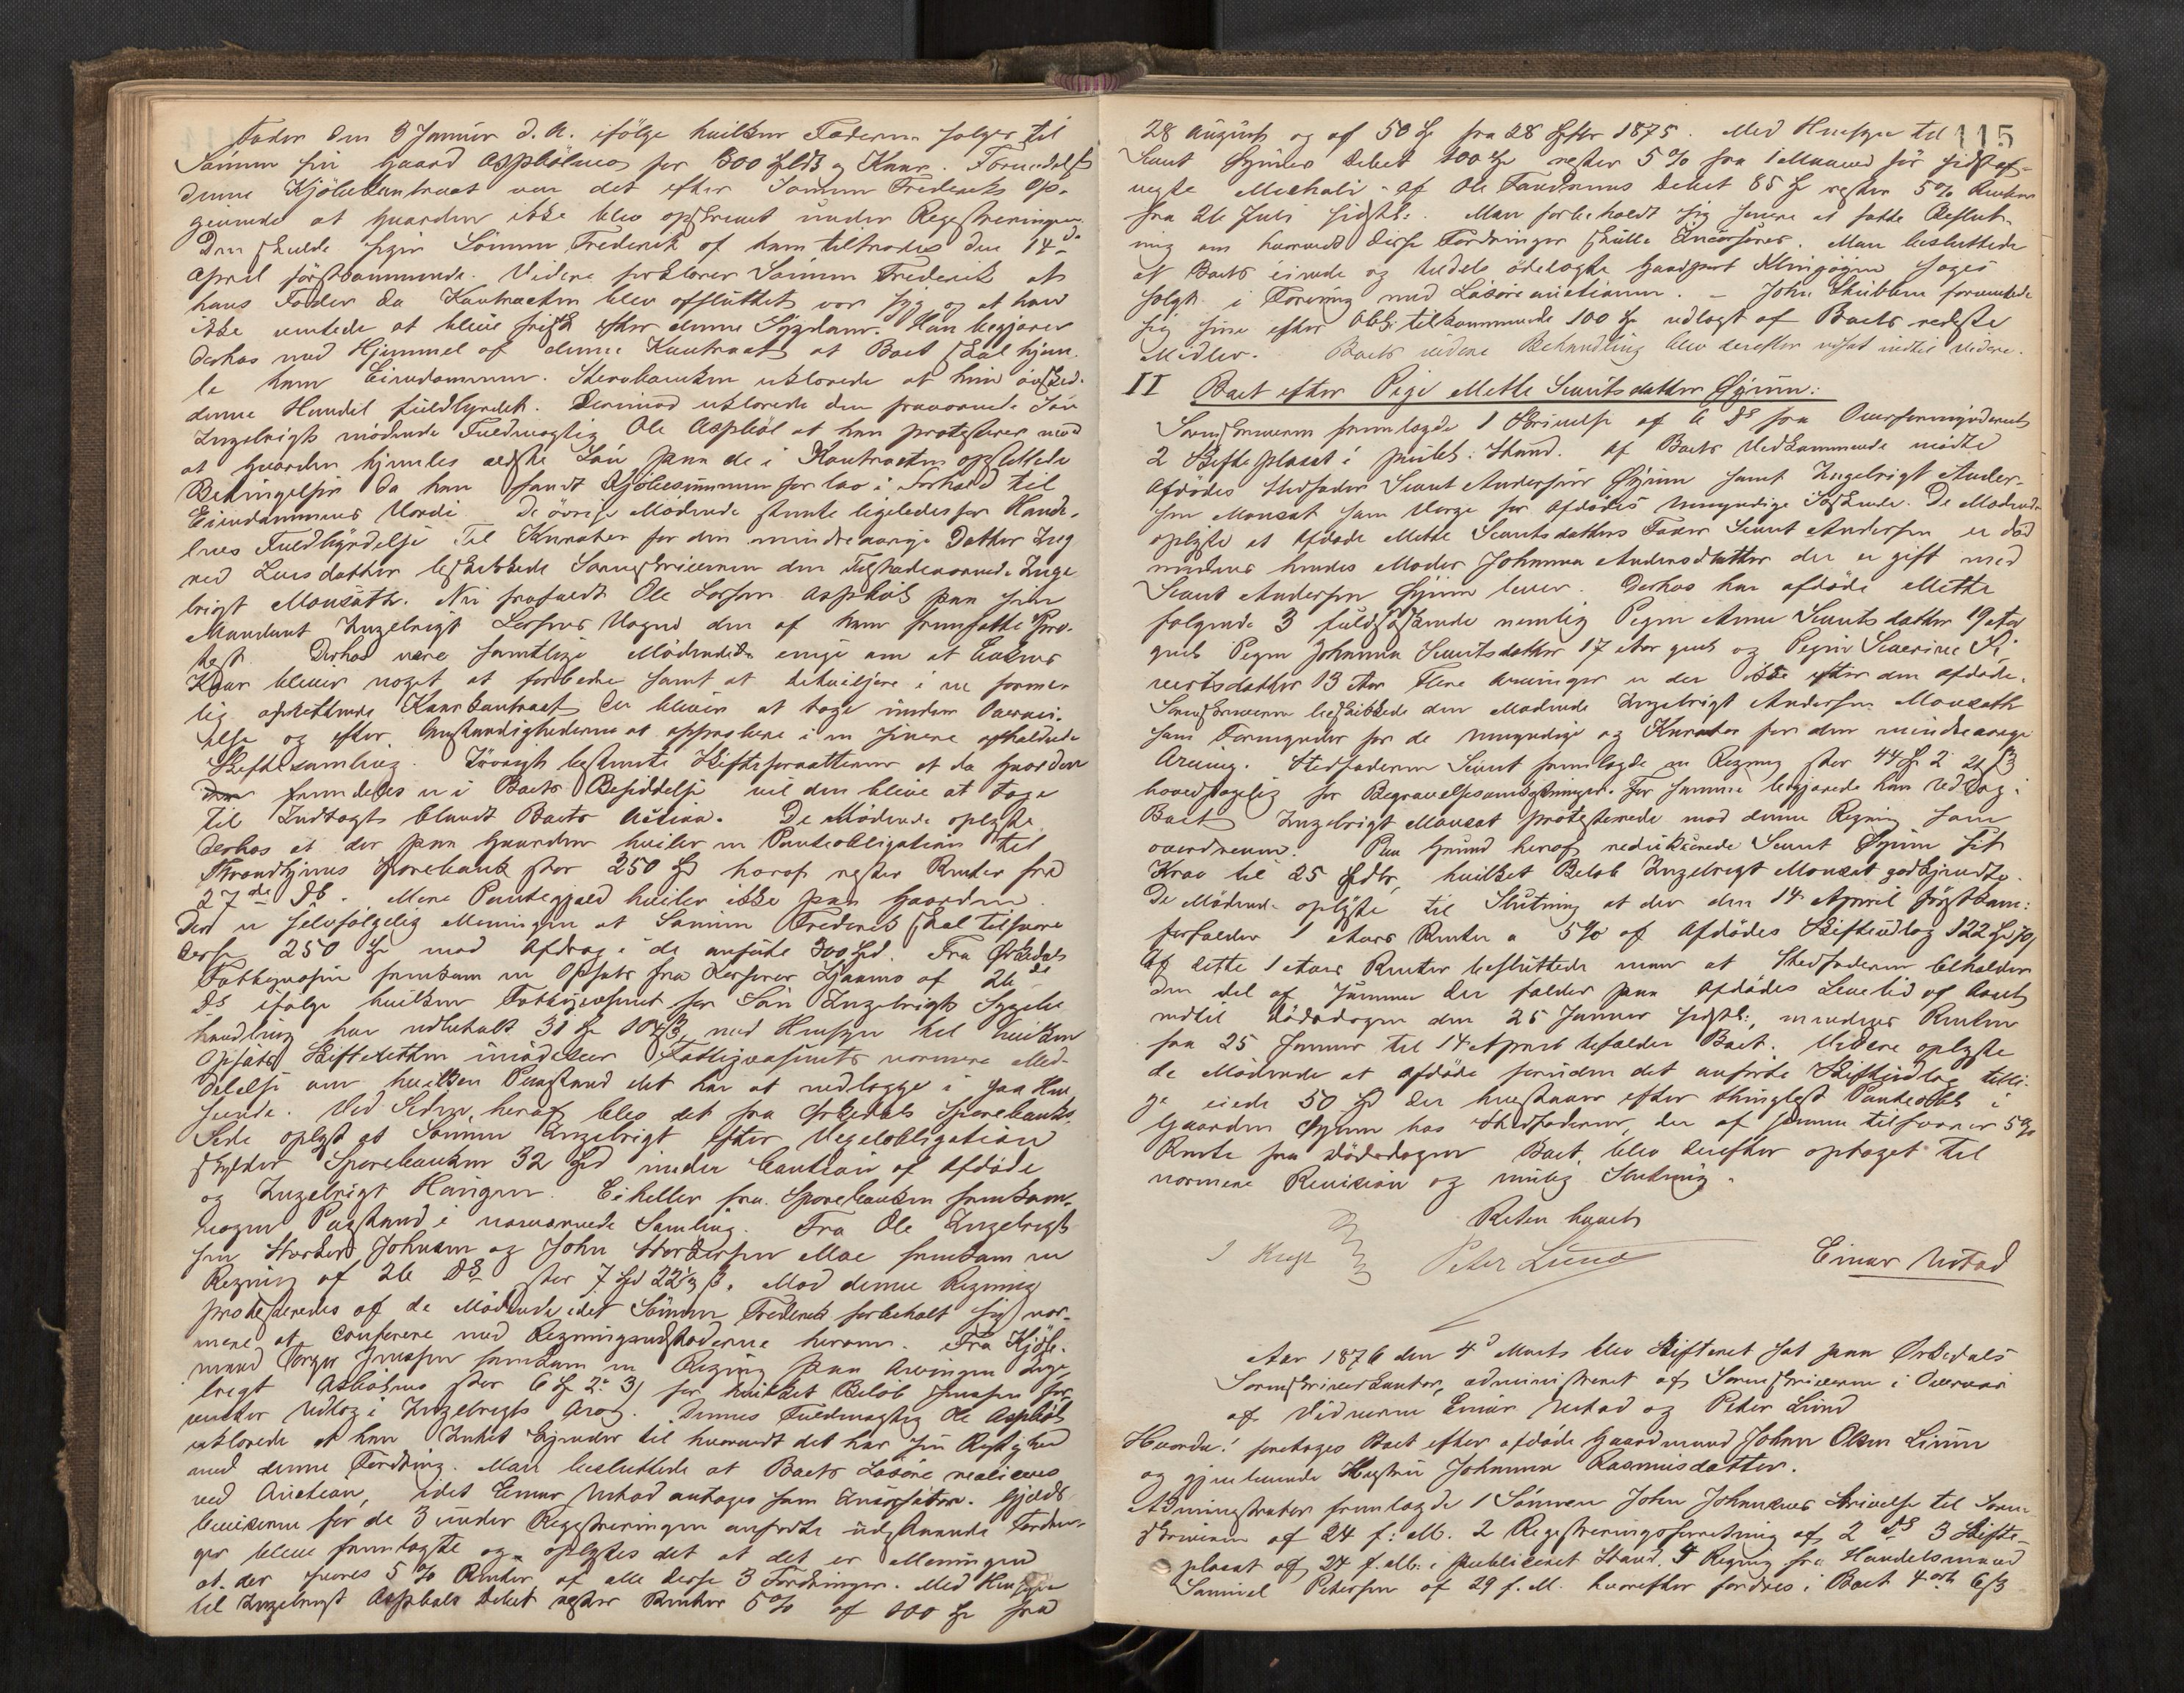 Fader den 3 Januar d. A. ifölge hvilken Faderen solgte til
Sönnen sin Gaard Asphölmo for 300 Spd og Kaar. Foruden
denne Kjöbekontract var det efter Sönnen Frederiks Op-
givende at Gaarden ikke blev opskrevet under Registreringen.
Den skulde siger Sönnen Frederik af ham tiltrædes den 14de
April förstkommende. Videre forklarer Sönnen Frederik at
hans Fader da Kontracten blev afsluttet var syg og at han
ikke ventede at blive frisk efter denne Sygdom. Han begjærer
derhos med Hjemmel af denne Kontract at Boet skal hjem-
le ham Eiendommen. Sterbenken erklærede at hun önsked
denne Handel fuldbyrdet. Derimod erklærede den fraværende Sön
Ingebrigts mödende Fuldmægtig Ole Asphöl at han protesterer mod
at Gaarden hjemles ældste Sön paa de i Kontracten opstillede
Betingelser da han fandt Kjöbesummen for lav i Forhold til
Eiendommens Værdi. De övrige Mödende stemte ligeledes for Hande-
lens Fuldbyrdelse. Til Kurator for den mindreaarige Datter Ing
red Larsdatter beskikkede Sorenskriveren den tilstedeværende Inge
brigt Monsæth. Nu frafaldt Ole Larsen Asphöl paa sin
Mandant Ingebrigt Larsens Vegne den af ham fremsatte Pro-
test. Derhos vare samtlige Mödende enige om at Enkens
Kaar bliver noget at forbedre samt at detaillere i en formel-
lig oprettende Kaarkontract der bliver at tage under Overvei-
else og efter Omstændighederne at approbere i en senere afholdende
Skiftesamling. Iövrigt bestemte Skifteforvalteren at da Gaarden
fremdeles er i Boets Besiddelse vil den blive at tage
til Indtægt blandt Boets Activa. De Mödende oplyste
derhos at der paa Gaarden hviler en Panteobligation til
Throndhjems Sparebank stor 250 Spd hvoraf rester Renter fra
27de Ds. Mere Pantegjæld hviler ikke paa Gaarden.
Det er selvfølgelig Meningen at Sönnen Frederik skal tilsvare
disse 250 Spd mod Afdrag i de anförte 300 Spd. Fra Örkedals
Fattigvæsen fremkom en Opsats fra Kasserer Hjermo af 26de
Ds ifölge hvilken Fattigvæsenet for Sön Ingebrigts Sygebe
handling har udbetalt 31 Spd 104 ß, med Hensyn til hvilken
Opsats Skifteretten imödeseer Fattigvæsenets nærmere Med-
delelse om hvilken Paastand det har at nedlægge i saa Hen-
seende. Ved Siden heraf blev det fra Örkedals Sparebanks
Side oplyst at Sönnen Ingebrigt efter Vexelobligation
skylder Sparebanken 32 Spd under Caution af Afdöde
og Ingebrigt Haugen. Ei heller fra Sparebanken fremkom
nogen Paastand i nærværende Samling. Fra Ole Ingebrigt-
sen Storder Johnsen og John Storderssen Moe fremkom en
Regning af 26 Ds stor 7 Spd 22½ ß. Mod denne Regning
protesteredes af de Mödende idet Sönnen Frederik forbeholdt sig nær-
mere at conferere med Regningsudstederne herom. Fra Kjöb-
mand Jensen fremkom en Regning paa Arvingen Inge
brigt Asphölmo stor 6 Spd 2. 3, for hvilket Belöb Jensen for
venter Udlæg i Ingebrigts Arv. Dennes Fuldmægtig Ole Asphöl
erklærede at han Intet kjender til hvorvidt det har sin Rigtighed
med denne Fordring. Man besluttede at Boets Lösöre realiseres
ved Auction, idet Einar Ustad antages som Incassator. Gjælds
bevisene for de 3 under Registreringen anförte udestaaende Fordrin-
ger bleve fremlagte og oplystes det at det er Meningen
at der svares 5 % Renter af alle disse 3 Fordringer. Med Hensyn
til Ingebrigt Asphöls Debet rester Renter 5% af 100 Spd fra
115
28 August og af 50 Spd fra 28 Septbr 1875. Med Hensyn til
Sivert Öyums Debet 100 Spd rester 5 % fra 1 Maaned för sidstaf-
vigte Mikkeli - af Ole Debet 85 Spd rester 5% Renter
fra 26 Juli sidstl. Man forbeholdt sig senere at fatte Beslut-
ning om hvorvidt disse Fordringer skulle Incasseres. Man besluttede
at Boets eiende og tildels ödelagte Gaardpart söges
solgt i Forening med Lösöreauctionen. - John Skubben forventede
sig sine efter Obl. tilkommende 100 Spd udlagt af Boets rede
Midler. Boets videre Behandling blev derefter udsat indtil videre.
II Boet efter Pige Mette Sivertsdatter Öyum:
Sorenskriveren fremlagde 1 Skrivelse af 6 Ds fra Overformynderiet
2 Skifteplacat i publ. Stand. Af Boets Vedkommende mödte
Afdödes Stedfader Sivert Anderssön Öyum samt Ingebrigt Anders-
sen Monsæt som Værge for Afdödes umyndige Söskende. De Mödende
oplyste at Afdöde Mette Sivertsdatters Fader Sivert Andersen er död
medens hendes Moder Johanna Andersdatter der er gift med
Sivert Andersen Öyum lever. Derhos har afdöde Mette
følgende 3 fuldsöskende nemlig Pigen Anne Sivertsdatter 19 Aar
gml. Pigen Johanna Sivertsdatter 17 Aar gml. og Pigen Severine Si-
vertsdatter 13 Aar. Flere Arvinger er der ikke efter den afdöde.
Sorenskriveren beskikkede den Mödende Ingebrigt Andersen Monsæth
som Formynder for de umyndige og Kurator for den mindreaarige
Arving. Stedfaderen Sivert fremlagde en Regning stor 44 Spd 2 21 ß
hovedsagelig for Begravelsesomkostninger. For samme begjærede han Udlæg i
Boet. Ingebrigt Monsæt protesterede mod denne Regning som
overdreven. Paa Grund heraf reducerede Sivert Öyum sit
Krav til 25 Spdlr, hvilket Belöb Ingebrigt Monsæt godkjendte.
De Mödende oplyste til Slutning at der den 14 April förstkom:
forfalder 1 Aars Renter a 5% af Afdödes Skifteudlæg 122 Spd
Af dette 1 Aars Renter besluttede man at Stedfaderen beholder
den del af Summen der falder paa Afdödes Levetid af Aaret
indtil Dödsdagen den 25 Januar sidstl:, medens Renten
fra 25 Januar til 14 April tilfalder Boet. Videre oplyste
de Mödende at Afdöde foruden det anförte Skifteudlæg tilli-
ge eiede 50 Spd der henstaar efter thinglyst Panteobl. i
Gaarden Öyum hos Stedfaderen, der af samme tilsvarer 5%
Rente fra Dödsdagen. Boet blev derefter optaget til
nærmere Revision og mulig Slutning.
Retten hævet
Peter Lund
Einar Ustad
Aar 1876 den 4d Marts blev Skifteret sat paa Örkedals
Sorenskriverkontor, administreret af Sorenskriveren i Overvær
af Vidnerne Einar Ustad og Peter Lund
Hvorda: foretages Boet efter afdöde Gaardmand John Olsen Lium
og gjenlevende Hustru Johanna Rasmusdatter.
Administrator fremlagde 1 Sönnen John Johnsens Skrivelse til Soren-
skriveren af 24 f: M. 2 Registreringsforretning af 2 ds 3 Skifte-
placat af 24 f. M. i publiceret Stand. 4 Regning fra Handelsmand
Samuel Petersen af 29 f. M. hvorefter fordres i Boet 4 ort 6 ß